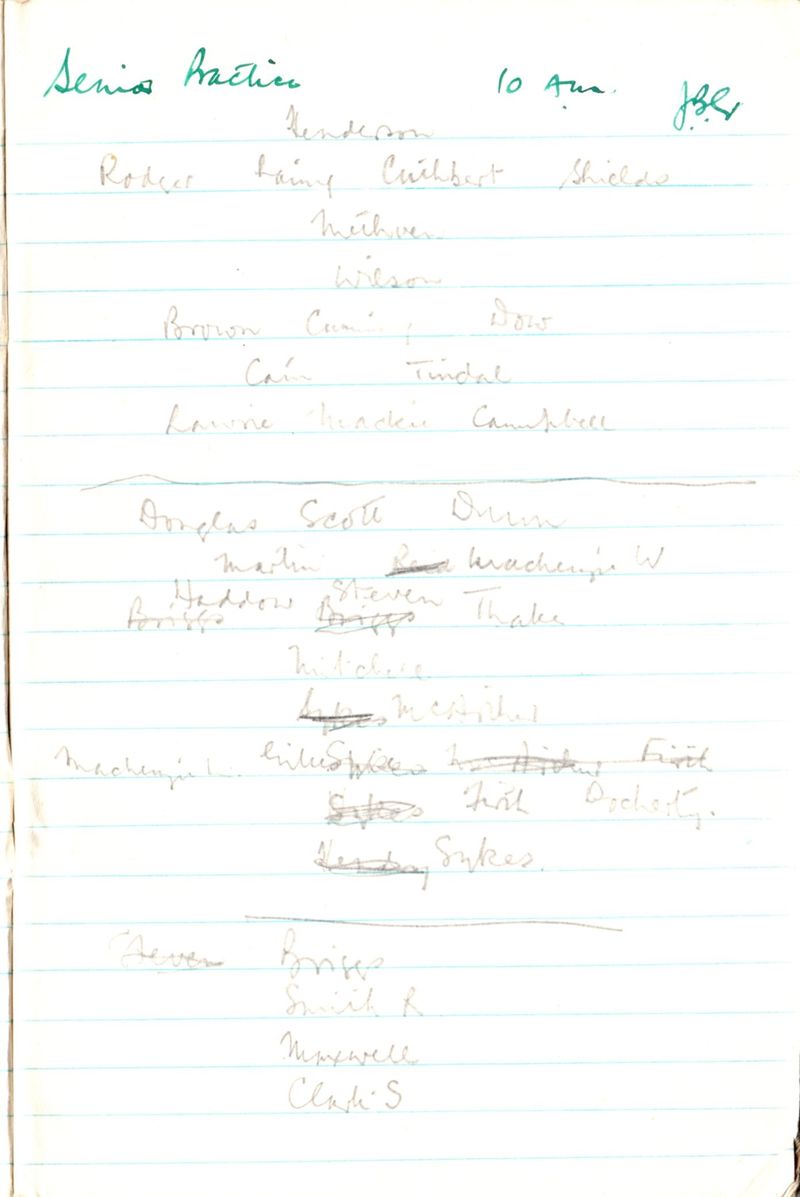 Senior Practice 10 Am. J.B.G.
Henderson
Rodger Laing Cuthbert Shields
Methven
Wilson
Brown Cumming Dow
Cain Tindal
Lawrie Mackie Campbell
Douglas Scott Dunn
Martin Reid Mackenzie W
Haddow Steven Thake
Briggs Briggs
Mitchell
Sykes McArthur
Mackenzie Sykes McArthur Firth
Sykes Firth Docherty.
Sykes.
Steven Briggs
Smith R
Maxwell
Clark S